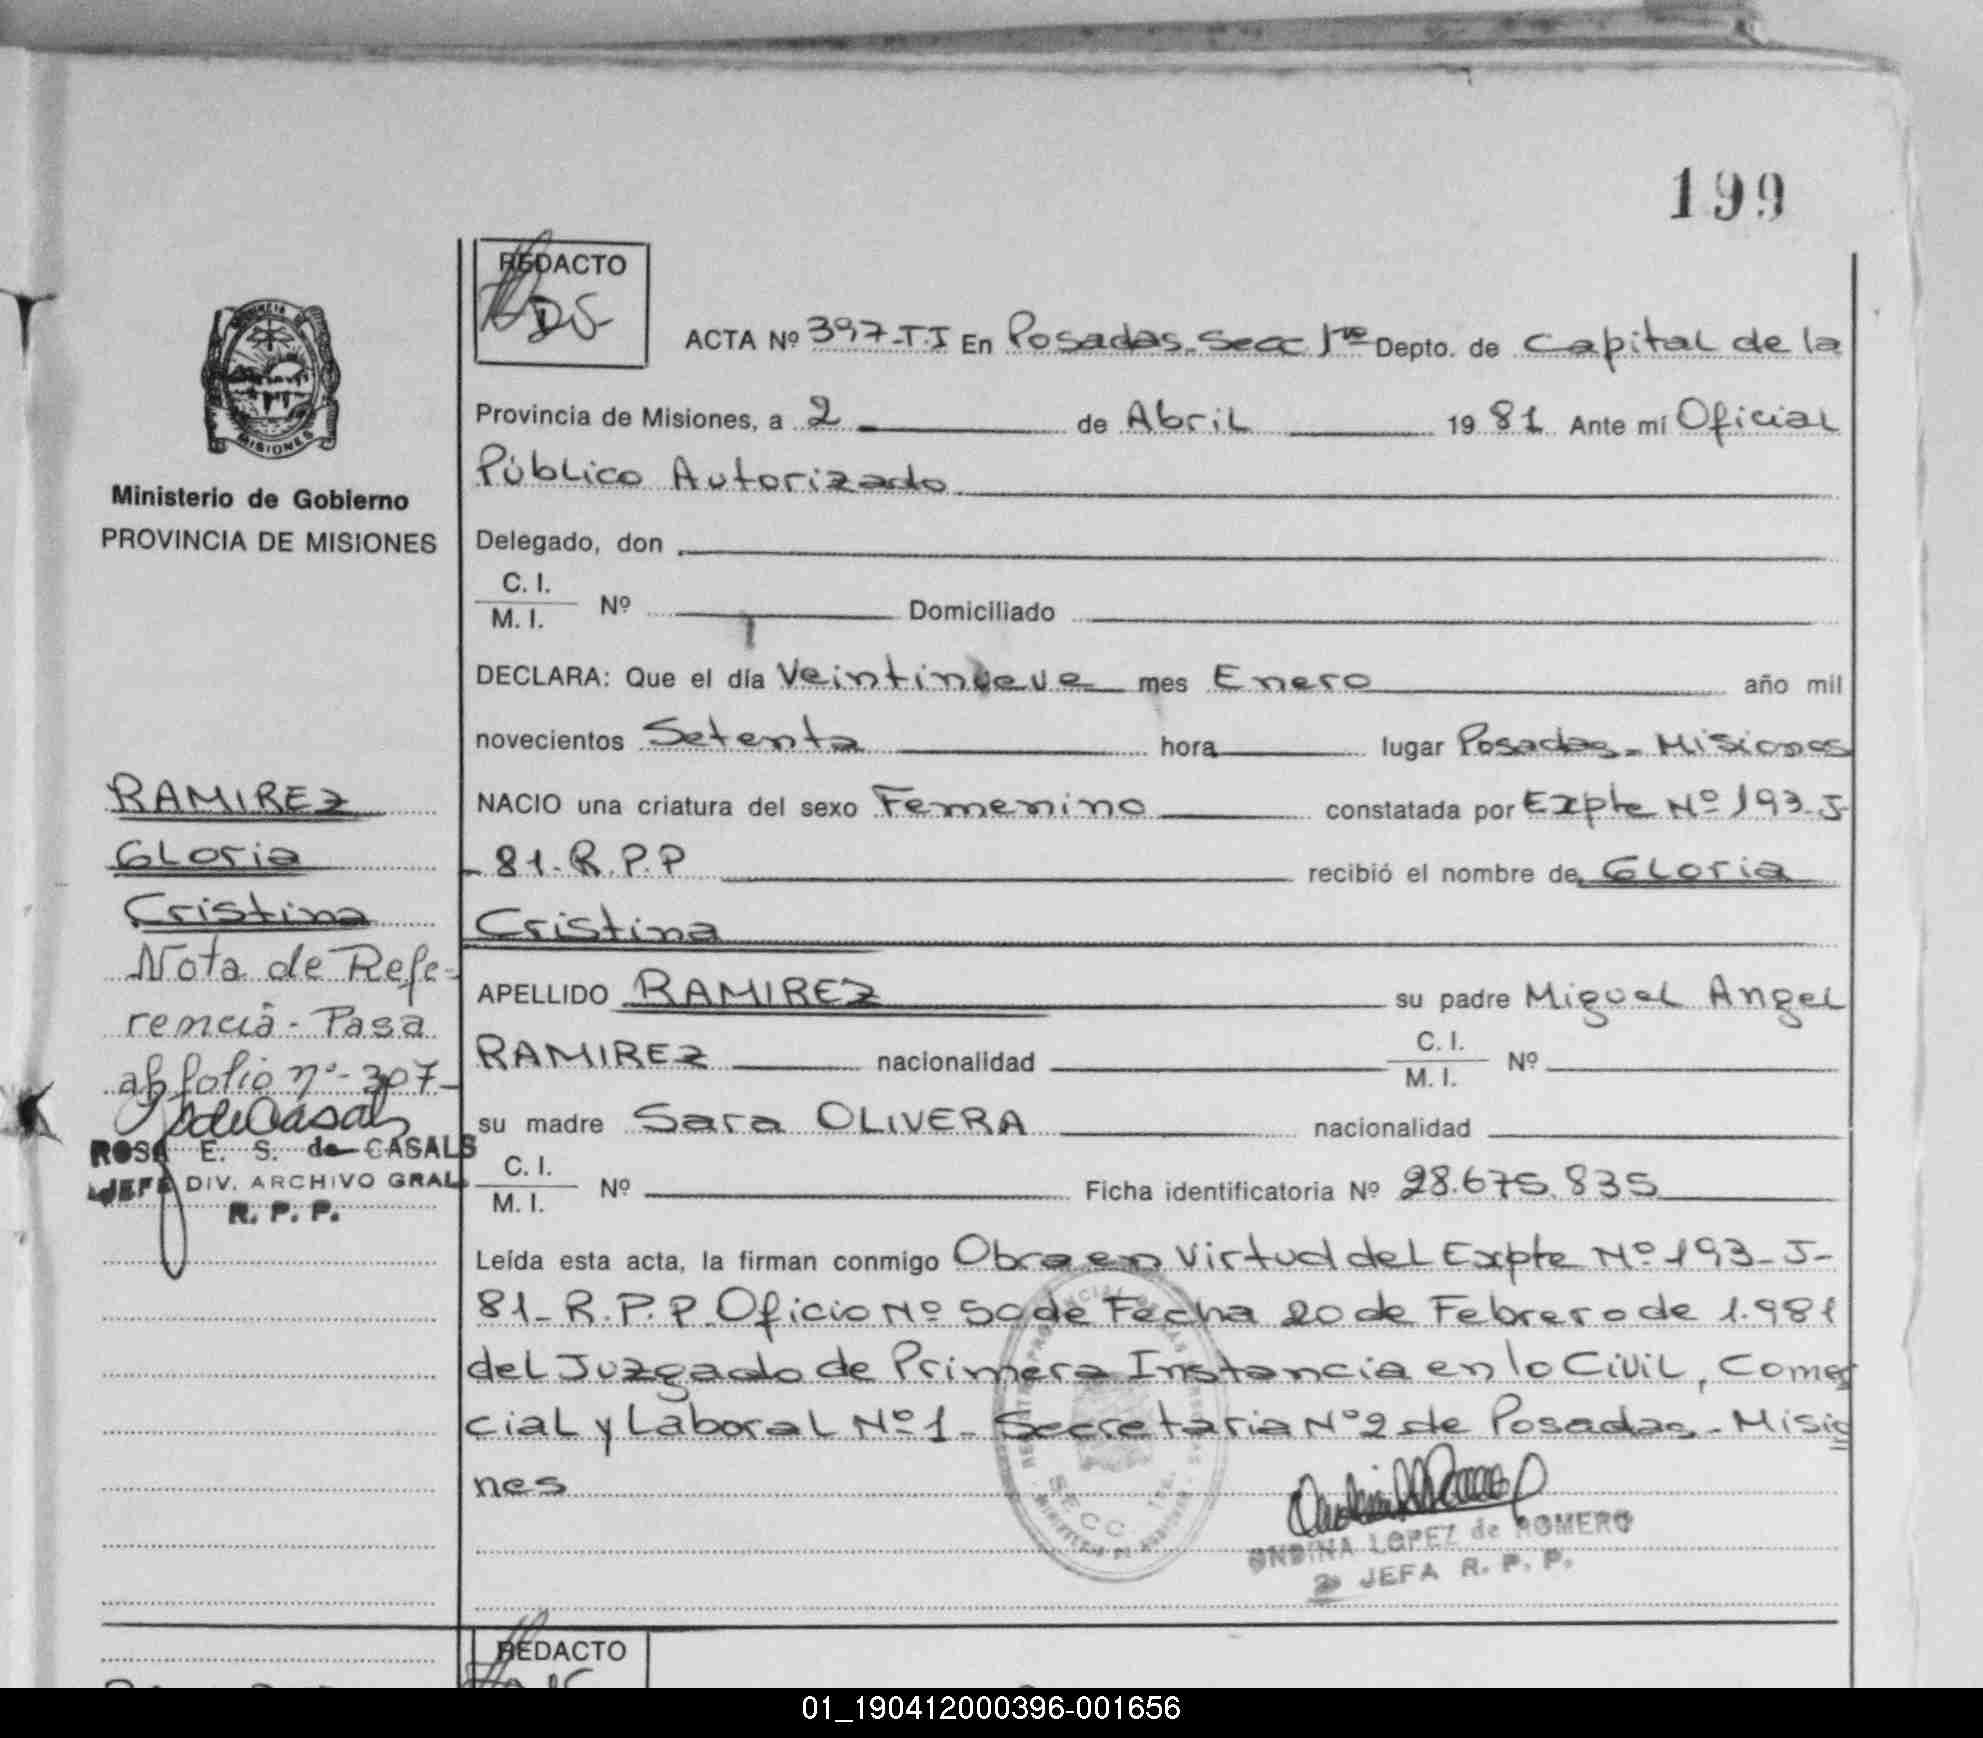 199
REDACTO
DS
ACTA Nº 397-T.I En Posadas-Secc 1ra Depto. de Capital de la
Provincia de Misiones, a 2 de Abril 1981 Ante mí Oficial
Público Autorizado
Delegado, don
C. I.
M. I. Nº Domiciliado
DECLARA: Que el día Veintinueve mes Enero año mil
novecientos Setenta hora lugar Posadas - Misiones
NACIO una criatura del sexo Femenino constatada por Expte Nº 193-J-
- 81-R.P.P recibió el nombre de Gloria
Cristina
APELLIDO RAMIREZ su padre Miguel Angel
RAMIREZ nacionalidad C. I.
M. I. Nº
su madre Sara OLIVERA nacionalidad
C. I.
M. I. Nº Ficha identificatoria Nº 28.675.835
Leída esta acta, la firman conmigo Obra en Virtud del Expte Nº 193-J-
81-R.P.P. Oficio Nº 50 de Fecha 20 de Febrero de 1.981
del Juzgado de Primera Instancia en lo Civil, Comer
cial y Laboral Nº 1 - Secretaria Nº 2 de Posadas - Misio
nes
ONDINA LOPEZ de ROMERO
2ª JEFA R. P. P.
SECC. 1ra.
MISIONES
Ministerio de Gobierno
PROVINCIA DE MISIONES
RAMIREZ
Gloria
Cristina
Nota de Refe-
rencia - Pasa
al folio nº - 307-
ROSA E. S. de CASALS
JEFE DIV. ARCHIVO GRAL.
R. P. P.
REDACTO
01_190412000396-001656